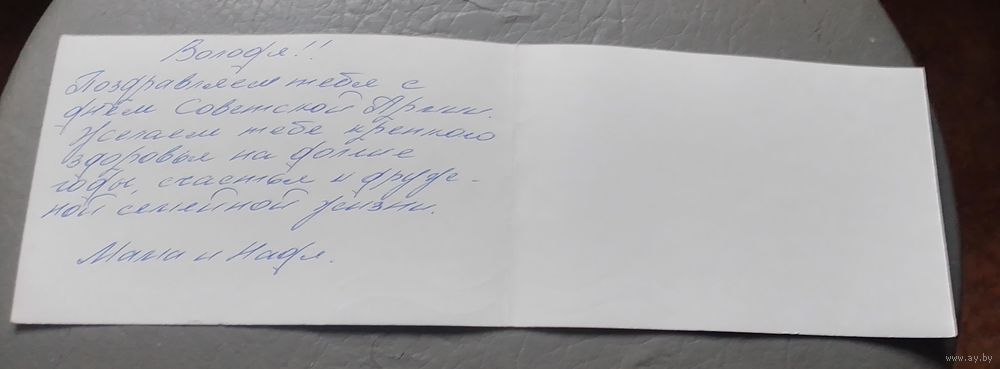 Володя!!
Поздравляем тебя с
днём Советской Армии.
Желаем тебе крепкого
здоровья на долгие
годы, счастья и друж-
ной семейной жизни.
Мама и Надя.
www.ay.by